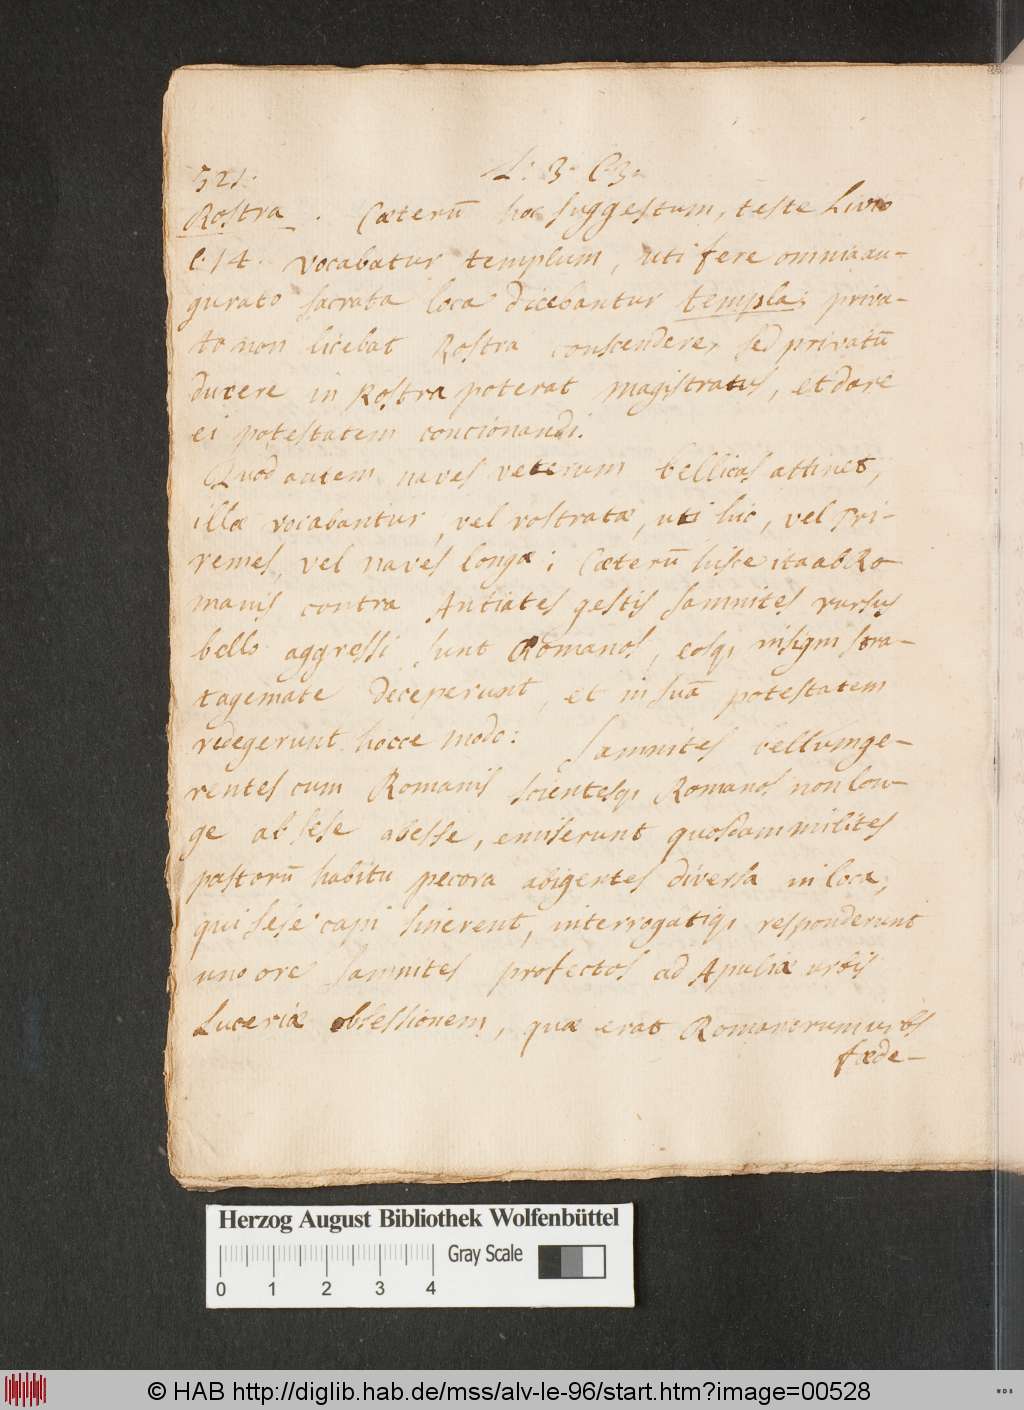 521.
L. 3. C. 3.
Rostra. Cæterū hoc suggestum, teste Livio
l. 14. vocabatur templum, uti fere omnia au-
gurato sacrata loca dicebantur templa; priva-
to non licebat Rostra conscendere, sed privatū
ducere in Rostra poterat magistratus, et dare
ei potestatem concionandi.
Quod autem naves veterum bellicas attinet,
illæ vocabantur, vel rostratæ, uti hic, vel Tri-
remes, vel naves longæ; Cæterū hisce ita ab Ro-
manis contra Antiates gestis Samnites rursus
bello aggressi sunt Romanos, eosq; insigni stra-
tagemate deceperunt, et in suā potestatem
redegerunt hocce modo: Samnites bellumge-
rentes cum Romanis scientesq; Romanos non lon-
ge ab sese abesse, emiserunt quosdam milites
pastorū habitu pecora abigentes diversa in loca,
qui sese capi sinerent, interrogatiq; responderunt
uno ore Samnites profectos ad Apuliæ urbis
Luceriæ obsessionem, quæ erat Romanorum urbs
fœde-
Herzog August Bibliothek Wolfenbüttel
0 1 2 3 4 Gray Scale
© HAB http://diglib.hab.de/mss/alv-le-96/start.htm?image=00528